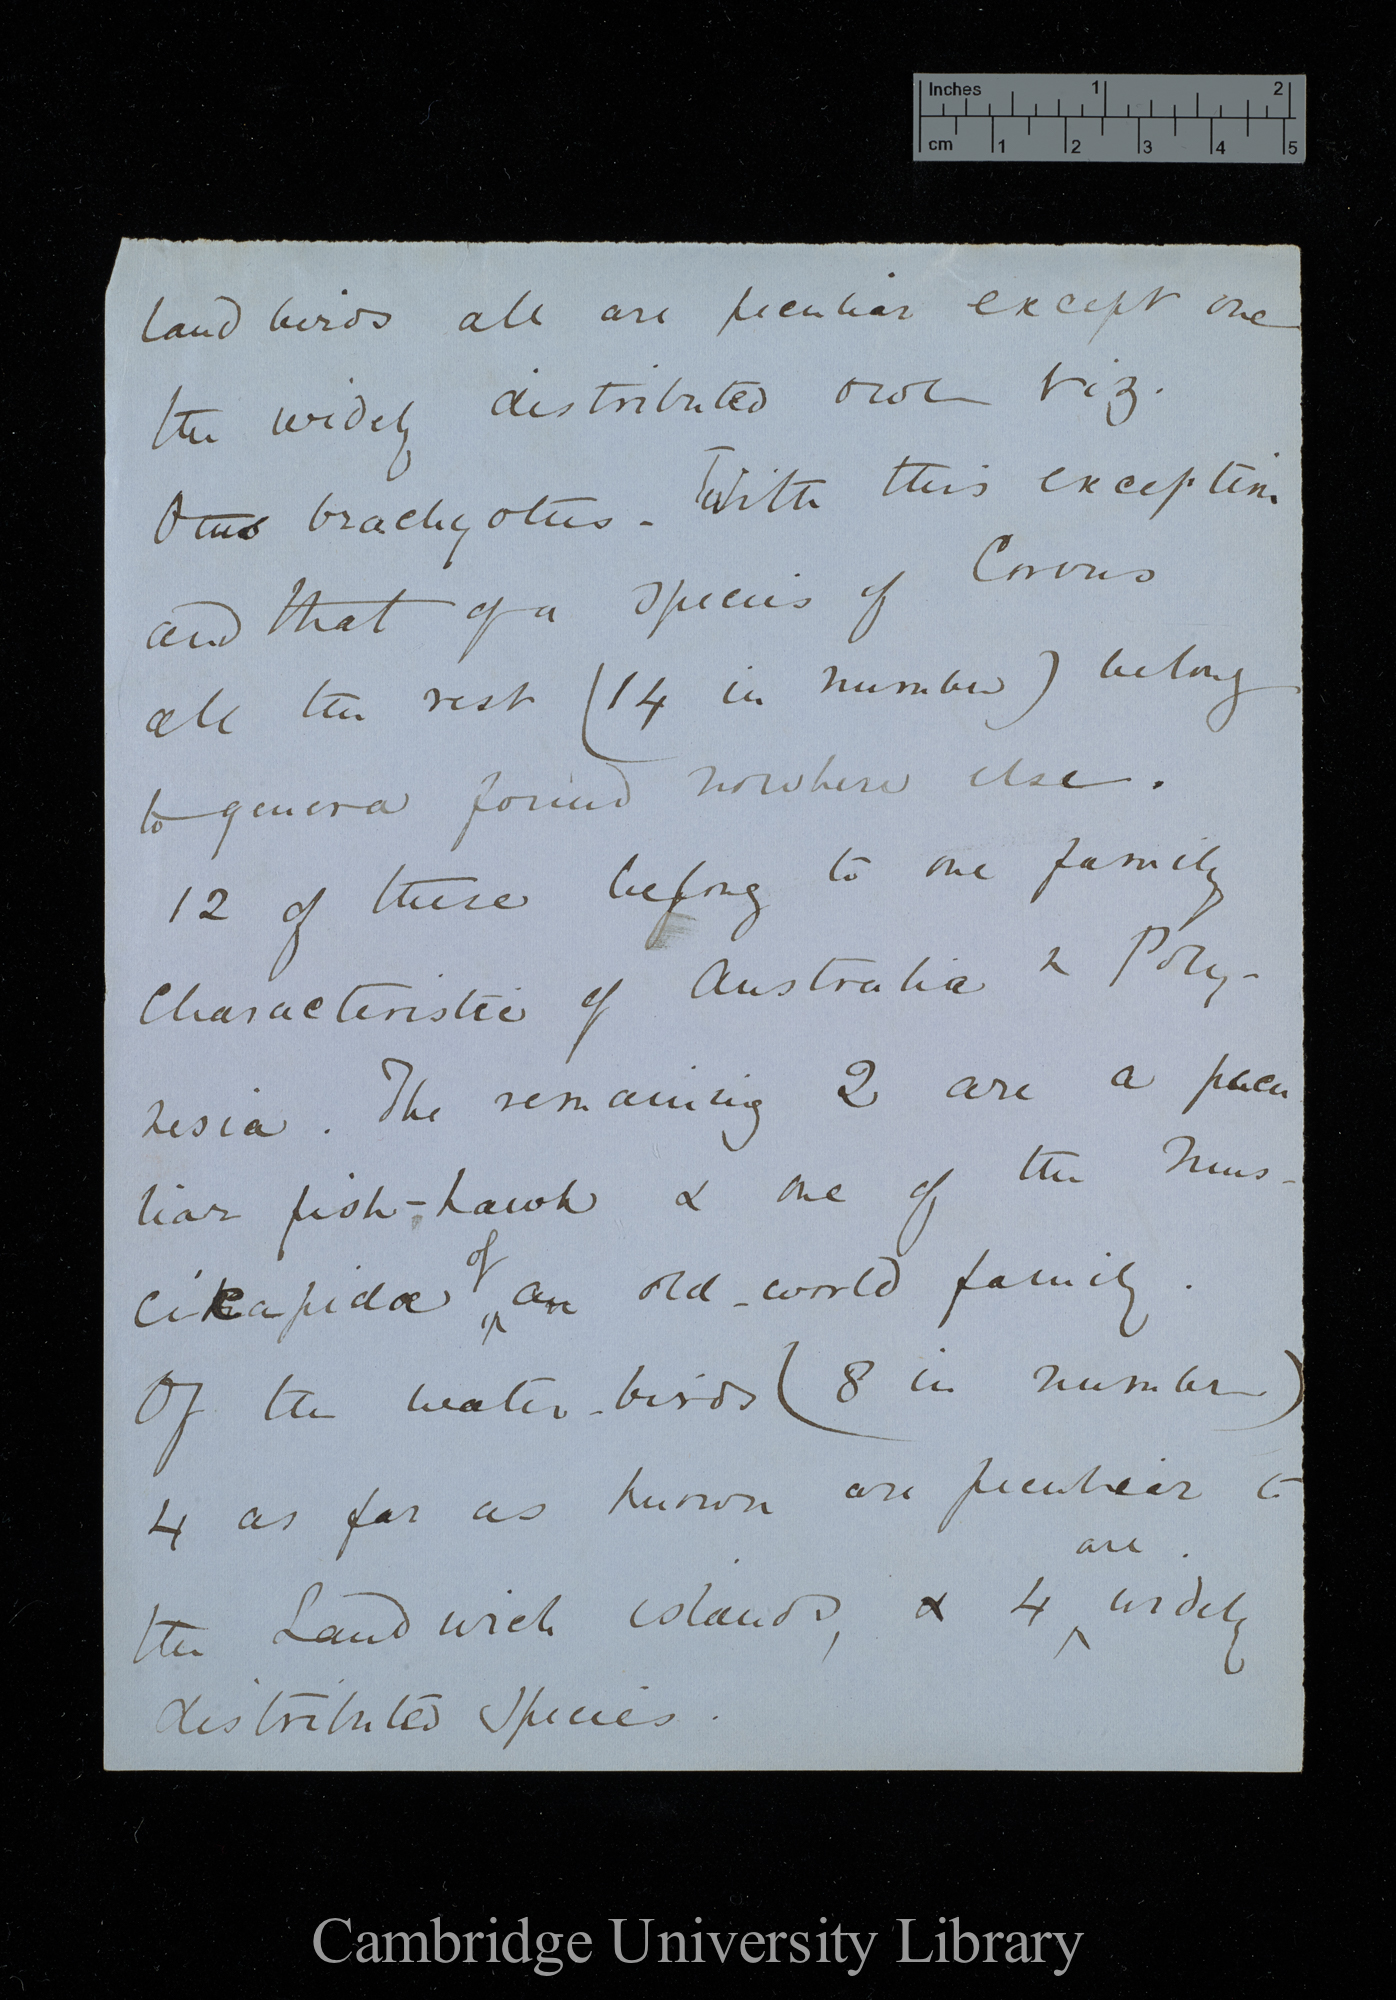 Inches 1 2
cm 1 2 3 4 5
land birds all are peculiar except one
the widely distributed owl viz.
Otus brachyotus - With this exception
and that of a species of Corvus
all the rest (14 in number) belong
to genera found nowhere else.
12 of these belong to one family
characteristic of Australia & Poly-
nesia. The remaining 2 are a pecu
liar fish-hawk & one of the Mus-
cicapidæ of an old-world family.
Of the water-birds (8 in number)
4 as far as known are peculiar to
the Sandwich islands, & 4 are widely
distributed species.
Cambridge University Library